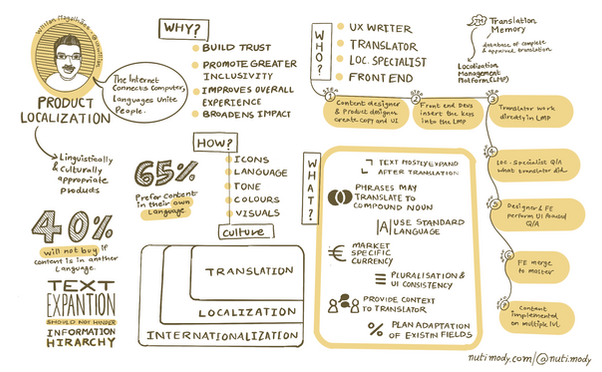 William Magalhães
PRODUCT
LOCALIZATION
The Internet
Connects Computers,
Languages Unite
People.
Linguistically
& Culturally
appropriate
products
40%
will not buy if
content is in another
language.
TEXT
EXPANTION
SHOULD NOT HINDER
INFORMATION
HIRARCHY
WHY?
BUILD TRUST
PROMOTE GREATER
INCLUSIVITY
IMPROVES OVERALL
EXPERIENCE
BROADENS IMPACT
65%
Prefer content
in their own
Language
HOW?
ICONS
LANGUAGE
TONE
COLOURS
VISUALS
culture
TRANSLATION
LOCALIZATION
INTERNATIONALIZATION
WHO?
UX WRITER
TRANSLATOR
LOC. SPECIALIST
FRONT END
TM
Translation
Memory
database of complete
& approved translation
Localization
Management
Platform (LMP)
1
Content designer
& Product designer
create copy and UI
2
Front end Devs
insert the keys
into the LMP
3
Translator work
directly in LMP
4
Loc. Specialist Q/A
what translator did.
5
Designer & FE
perform UI focused
Q/A
6
FE merge
to master
7
Content
implemented
on multiple lvl
WHAT?
TEXT MOSTLY EXPAND
AFTER TRANSLATION
PHRASES MAY
TRANSLATE TO
COMPOUND NOUN
|A| USE STANDARD
LANGUAGE
€ MARKET
SPECIFIC
CURRENCY
PLURALISATION &
UI CONSISTENCY
PROVIDE CONTEXT
TO TRANSLATOR
% PLAN ADAPTATION
OF EXISTIN FIELDS
nutimody.com/@nuti.mody